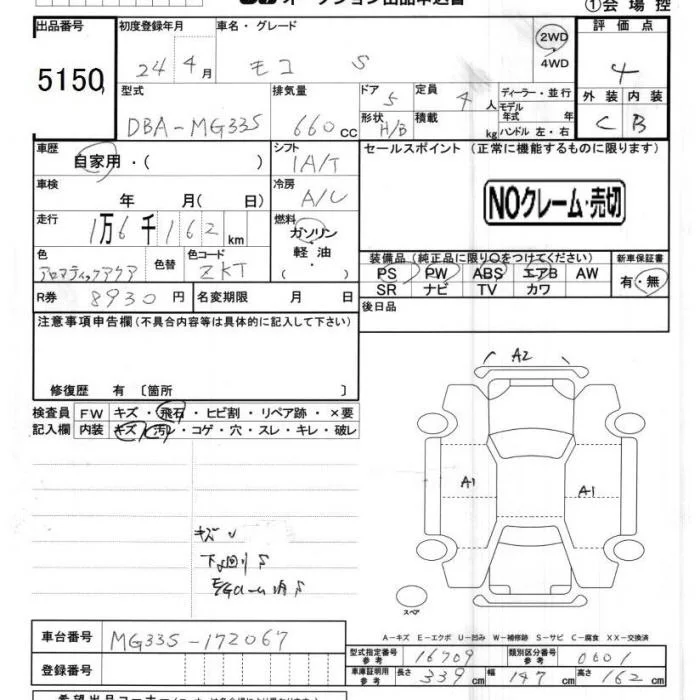 オークション出品申込書
①会場控
出品番号
5150
初度登録年月
24 4月
車名・グレード
モコ S
2WD
4WD
評価点
4
外装 内装
C B
型式
DBA-MG33S
排気量
660cc
ドア
5
定員
4人
形状
H/B
積載
kg
ディーラー・並行
モデル年式 年
ハンドル 左・右
車歴
自家用・( )
シフト
IA/T
セールスポイント (正常に機能するものに限ります)
NOクレーム・売切
車検
年 月( 日)
冷房
A/C
走行
1万6千162km
燃料
ガソリン・軽油・( )
色
アロマティックアクア
色替
色コード
ZKT
装備品 (純正品に限り○をつけてください)
PS PW ABS エアB AW
SR ナビ TV カワ
新車保証書
有・無
R券 8930円
名変期限 月 日
後日品
注意事項申告欄 (不具合内容等は具体的に記入して下さい)
修復歴 有 〔箇所 〕
検査員記入欄
FW キズ・飛石・ヒビ割・リペア跡・×要
内装 キズ・汚レ・コゲ・穴・スレ・キレ・破レ
A2
A1
A1
キズ
下回りS
スペア
A-キズ E-エクボ U-凹み W-補修跡 S-サビ C-腐食 XX-交換済
車台番号
MG33S-172067
登録番号
型式指定番号 参考
16709
類別区分番号 参考
0601
車庫証明用 参考
長さ 339cm 幅 147cm 高さ 162cm